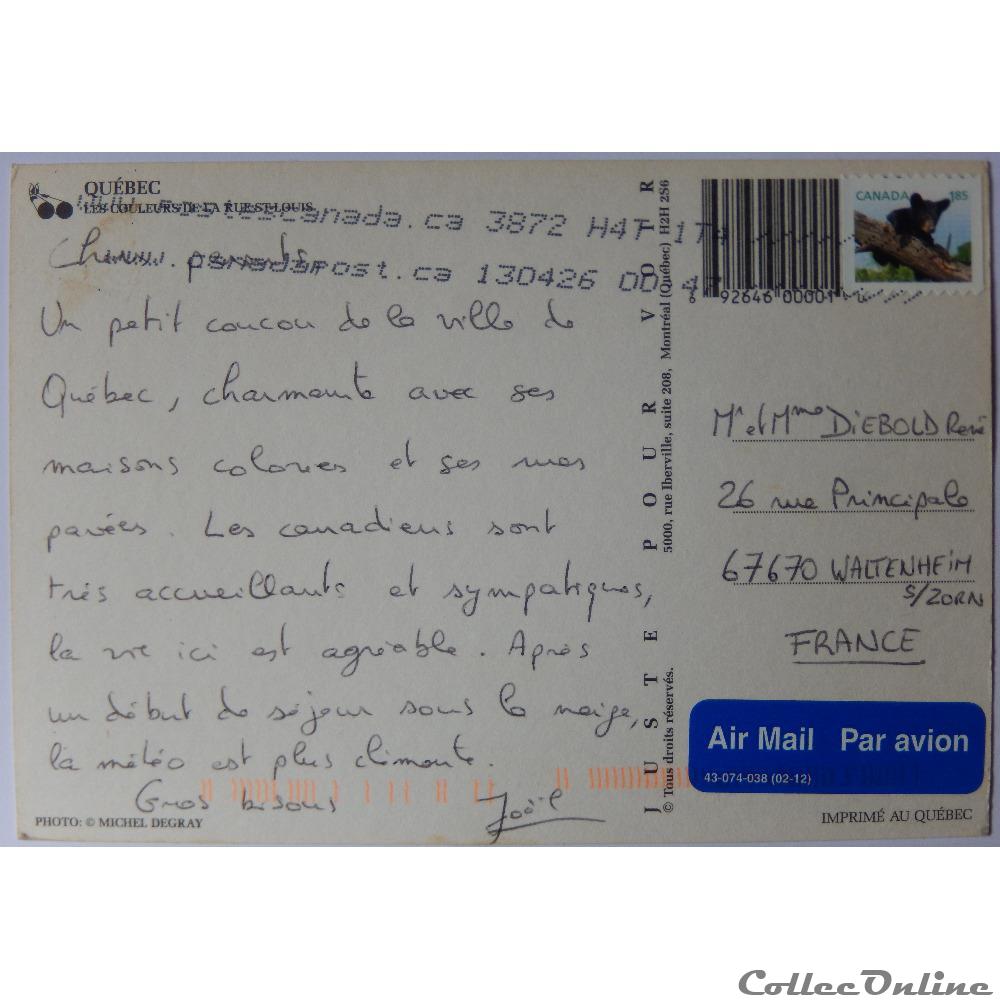 QUÉBEC
LES COULEURS DE LA RUE ST-LOUIS
www.postescanada.ca 3872 H4T 1T4
www.canadapost.ca 130426 00 47
Chers parents,
Un petit coucou de la ville de
Québec, charmante avec ses
maisons colorées et ses rues
pavées. Les canadiens sont
très accueillants et sympatiques,
la vie ici est agréable. Après
un début de séjour sous la neige,
la météo est plus clémente.
Gros bisous Joël
PHOTO: © MICHEL DEGRAY
JUSTE POUR VOIR
5000, rue Iberville, suite 208, Montréal (Québec) H2H 2S6
© Tous droits réservés.
92646 00001
CANADA 185
Mr et Mme DiEBOLD René
26 rue Principale
67670 WALTENHEiM
S/ZORN
FRANCE
Air Mail Par avion
43-074-038 (02-12)
IMPRIMÉ AU QUÉBEC
CollecOnline